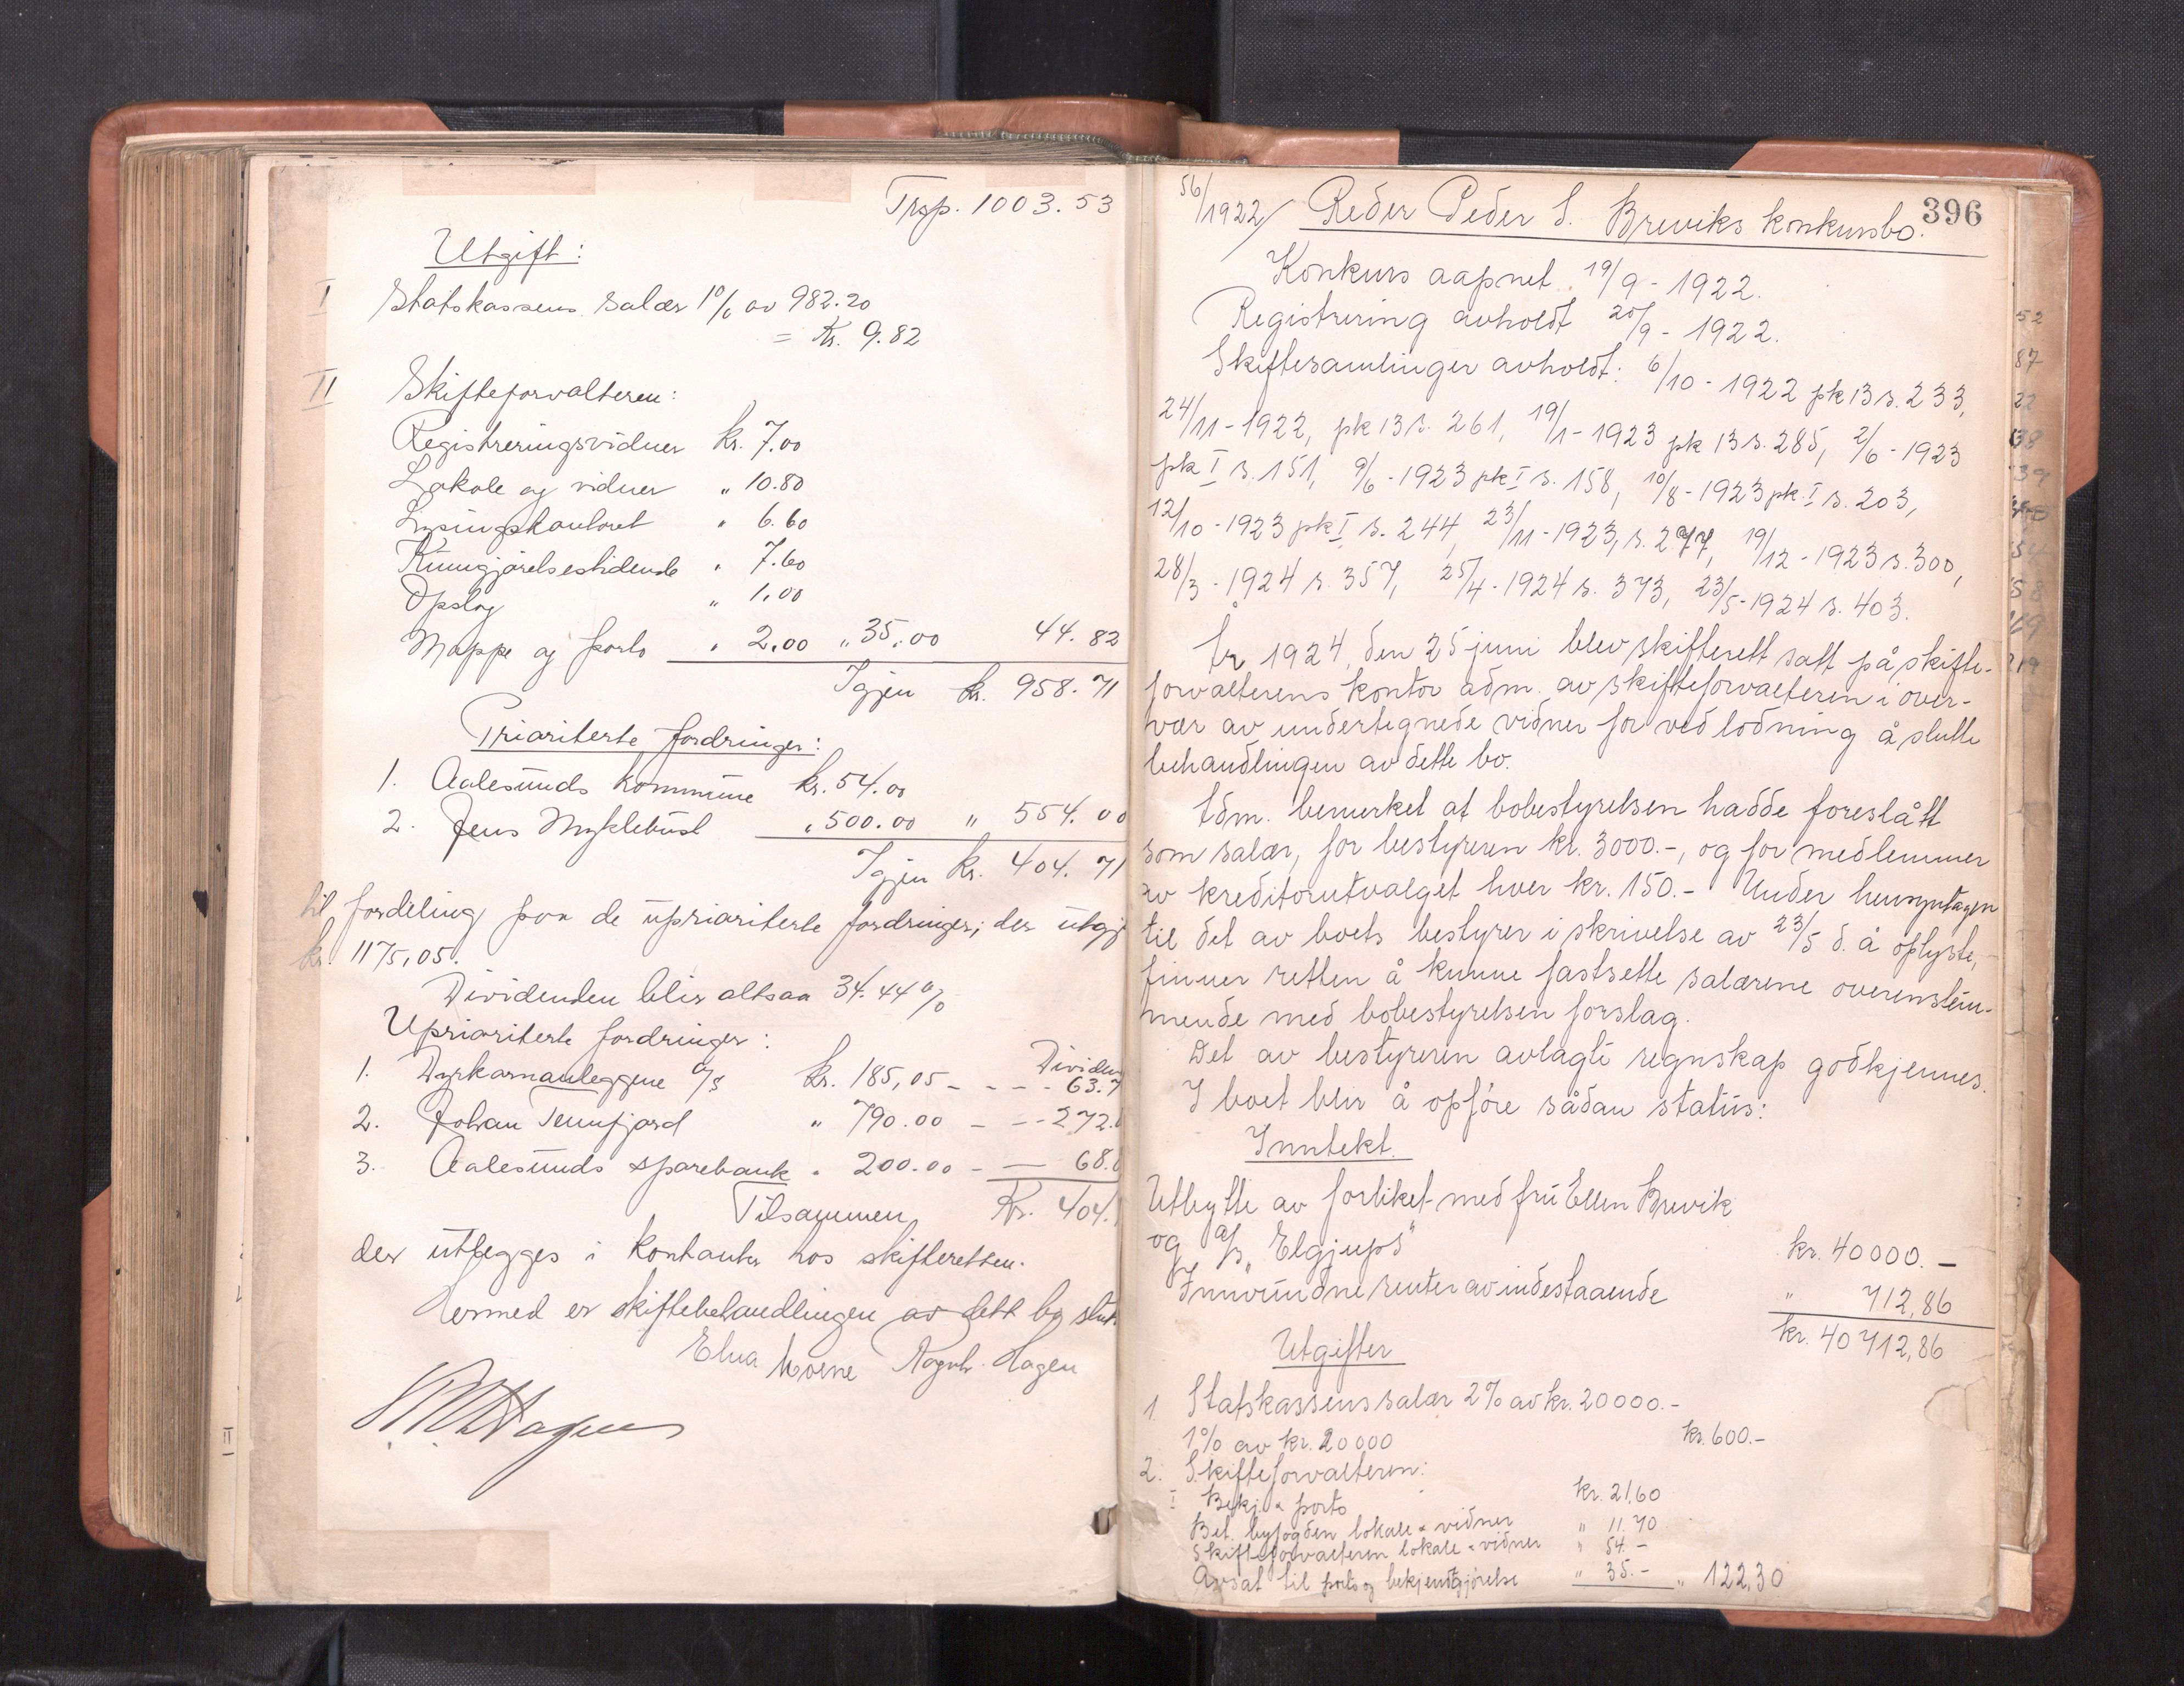 Trsp. 1003.53
Utgift:
I Statskassens salær 1% av 982.20
= Kr. 9.82
II Skifteforvalteren:
Registreringsvidner kr. 7.00
Lokale og vidner " 10.80
Lysingskontoret " 6.60
Kunngjørelsestidende " 7.60
Opslag " 1.00
Mappe og porto " 2.00 " 35.00 44.82
Igjen kr. 958.71
Prioriterte fordringer:
1. Aalesunds kommune kr. 54.00
2. Jens Myklebust " 500.00 " 554.00
Igjen kr. 404.71
til fordeling paa de uprioriterte fordringer, der utgj
kr. 1175,05.
Dividenden blir altsaa 34.44%
Uprioriterte fordringer:
Dividen
1. Dyrkornanleggene A/S kr. 185,05 - - - - 63.7
2. Johan Tennfjord " 790.00 - - - 272.
3. Aalesunds sparebank " 200.00 - — 68.
Tilsammen Kr. 404.
der utlegges i kontanter hos skifteretten.
Hermed er skiftebehandlingen av dett bo slut
Elna Hagen
396
56/1922 Reder Peder S. Breviks konkursbo.
Konkurs aapnet 19/9 - 1922.
Registrering avholdt 20/9 - 1922.
Skiftesamlinger avholdt: 6/10 - 1922 pk 13 s. 233,
24/11 - 1922, pk 13 s. 261, 19/1 - 1923 pk 13 s. 285, 2/6 - 1923
pk I s. 151, 9/6 - 1923 pk I s. 158, 10/8 - 1923 pk. I s. 203,
12/10 - 1923 pk I s. 244, 23/11 - 1923, s. 277, 19/12 - 1923 s. 300,
28/3 - 1924 s. 357, 25/4 - 1924 s. 373, 23/5 - 1924 s. 403.
År 1924, den 25 juni blev skifterett satt på skifte-
forvalterens kontor adm. av skifteforvalteren i over-
vær av undertegnede vidner for ved lodning å slutte
behandlingen av dette bo.
Adm. bemerket at bobestyrelsen hadde foreslått
som salær, for bestyreren kr. 3000.-, og for medlemmer
av kreditorutvalget hver kr. 150.- Under hensyntagen
til det av boets bestyrer i skrivelse av 23/5 d. å oplyste,
finner retten å kunne fastsette salærene overenstem-
mende med bobestyrelsen forslag.
Det av bestyreren avlagte regnskap godkjennes.
I boet blir å opføre sådan status:
Inntekt.
Utbytte av forliket med fru Ellen Brevik
og A/S "Elgjups" kr. 40000.—
Innvundne renter av indestaaende " 712,86
kr. 40712,86
Utgifter
1 Statskassens salær 2% av kr. 20000.-
1% av kr. 20000 kr. 600.-
2. Skifteforvalteren:
I Bekj. & porto kr. 21,60
Bet. byfogden lokale & vidner " 11.70
Skifteforvalteren lokale & vidner " 54.-
Avsat til porto og bekjendtgjørelse " 35.- " 122,30
52
87
22